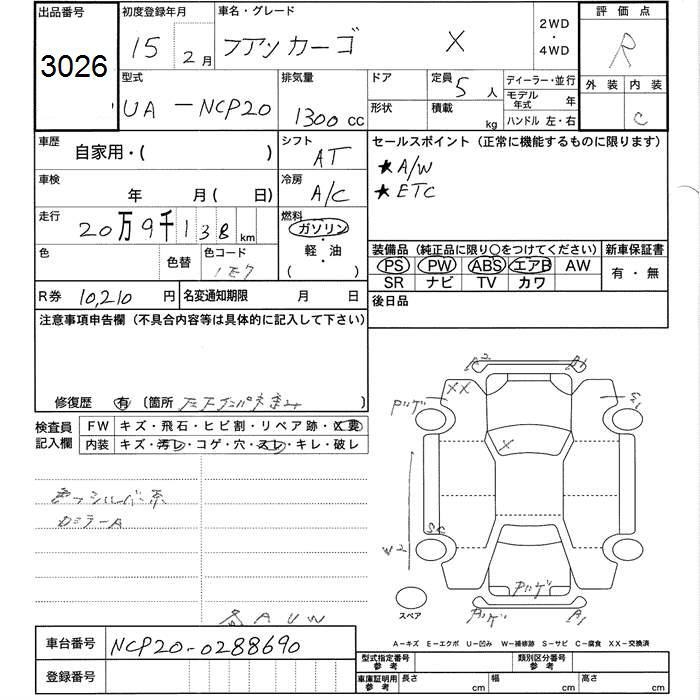 出品番号
3026
初度登録年月
15 年 2 月
車名・グレード
ファンカーゴ X
2WD
・
4WD
評価点
R
外装 内装
C
型式
UA-NCP20
排気量
1300 cc
ドア
形状
定員 5 人
積載 kg
ディーラー・並行
モデル年式 年
ハンドル 左・右
車歴
自家用・( )
シフト
AT
セールスポイント (正常に機能するものに限ります)
★A/W
★ETC
車検
年 月 ( 日)
冷房
A/C
走行
20万9千138 km
燃料
ガソリン
軽・油
( )
色
色替
色コード
1E7
装備品 (純正品に限り○をつけてください)
PS PW ABS エアB AW
SR ナビ TV カワ
新車保証書
有・無
R券 10,210 円
名変通知期限 月 日
後日品
注意事項申告欄 (不具合内容等は具体的に記入して下さい)
修復歴 有 〔箇所 〕
検査員記入欄
FW キズ・飛石・ヒビ割・リペア跡・X要
内装 キズ・汚レ・コゲ・穴・スレ・キレ・破レ
カミラーA
AUW
A2
A1
XX
Pツゲ
E1
X
SC
W2
Pツゲ
Pツゲ
A1
スペア
A-キズ E-エクボ U-凹み W-補修跡 S-サビ C-腐食 XX-交換済
車台番号 NCP20-0288690
登録番号
型式指定番号 参考
類別区分番号 参考
車庫証明用 参考
長さ cm
幅 cm
高さ cm